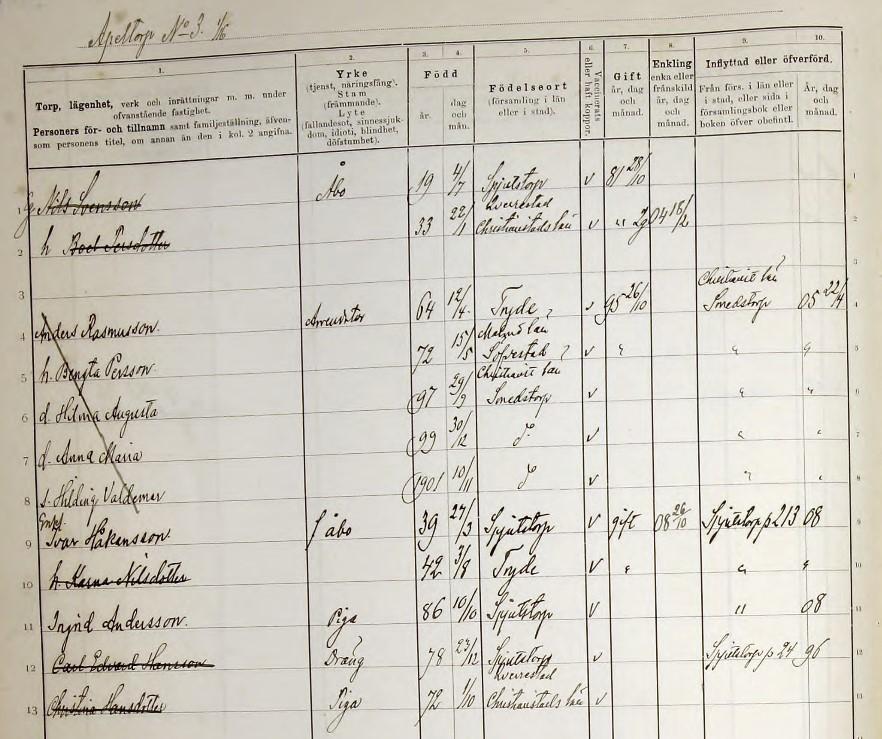 Apeltorp No 3. 1/16
1. 2. 3. 4. 5. 6. 7. 8. 9. 10.
Torp, lägenhet, verk och inrättningar m. m. under
ofvanstående fastighet.
Personers för- och tillnamn samt familjeställning, äfven-
som personens titel, om annan än den i kol. 2 angifna.
Yrke
(tjenst, näringsfång).
Stam
(främmande).
Lyte
(fallandesot, sinnessjuk-
dom, idioti, blindhet,
döfstumhet).
Född
år.
dag
och
mån.
Födelseort
(församling i län
eller i stad).
Vaccinerats
eller haft koppor.
Gift
år, dag
och
månad.
Enkling
enka eller
frånskild
år, dag
och
månad.
Inflyttad eller öfverförd.
Från förs. i län eller
i stad, eller sida i
församlingsbok eller
boken öfver obefintl.
År, dag
och
månad.
1 Nils Svensson Åbo 19 4/7 Spjutstorp v 81 28/10 1
Qverrestad
2 h Boel Persdotter 33 22/1 Christianstads län v " 04 18/2 2
3 3
Christianst län
4 Anders Rasmusson. Arrendator 64 12/4 Tryde v 95 26/10 Smedstorp 05 22/4 4
Malmö län
5 h. Bengta Persson 72 15/5 Söfvestad v " " " 5
Christianst län
6 d. Hilma Augusta 97 29/9 Smedstorp v " " 6
7 d. Anna Maria 99 30/12 d v " " 7
8 s. Hilding Valdemar 1901 10/11 d v " " 8
Enkl.
9 Ivar Håkansson. f åbo 39 27/3 Spjutstorp v gift 08 26/10 Spjutstorp p 213 08 9
10 h. Karna Nilsdotter 42 3/8 Tryde v " " " 10
11 Ingrid Andersson. Piga 86 10/10 Spjutstorp v " 08 11
12 Carl Edvard Hansson Dräng 78 23/12 Spjutstorp v Spjutstorp p 24 96 12
Qverrestad
13 Christina Hansdotter Piga 72 1/10 Christianstads län v 13